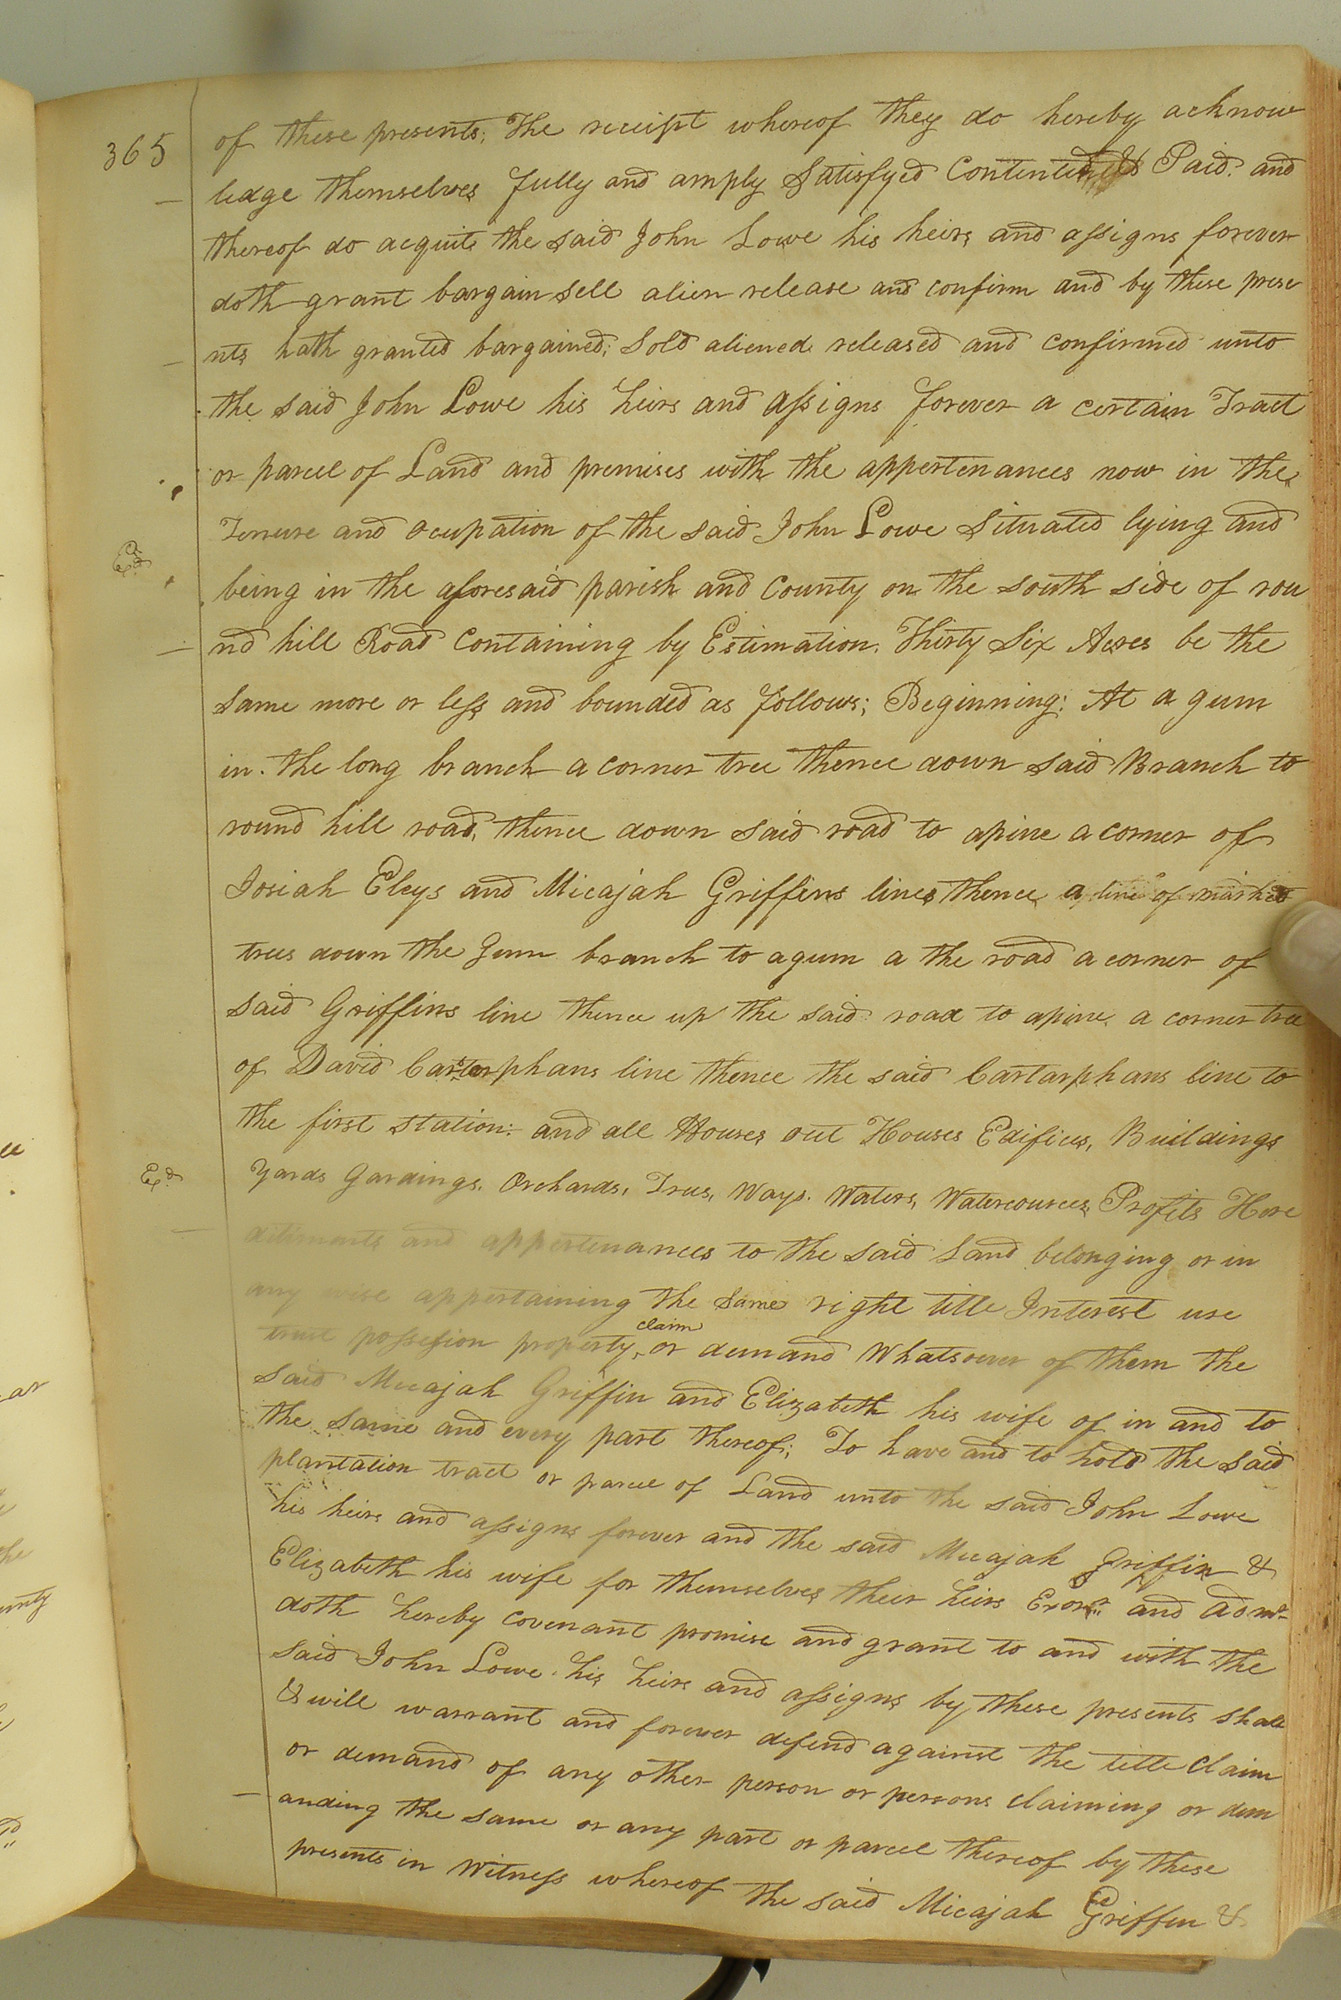 365
of these presents; The receipt whereof they do hereby acknow
ledge themselves fully and amply Satisfyed Contented & Paid. and
thereof do acquit the said John Lowe his heirs and assigns forever
doth grant bargain sell alien release and confirm and by these prese
nts hath granted bargained; Sold aliened released and confirmed unto
the said John Lowe his heirs and assigns forever a certain Tract
or parcel of Land and premises with the appertenances now in the
Tenure and Ocupation of the said John Lowe Situated lying and
being in the aforesaid parish and County on the south side of rou
nd hill Road Containing by Estimation. Thirty Six Acres be the
same more or less and bounded as follows; Beginning: At a gum
in the long branch a corner tree thence down said Branch to
round hill road, thence down said road to apine a corner of
Josiah Eleys and Micajah Griffins lines thence a line of marked
trees down the Gum branch to agum a the road a corner of
said Griffins line thence up the said road to apine a corner tree
of David Cartarphans line thence the said Cartarphans line to
the first station: and all Houses out Houses Edifices, Buildings
Exd
Yards Gardings. Orchards, Trees, Ways. Waters, Watercources, Profits Here
ditiments and appertenances to the said Land belonging or in
any wise appertaining the same right title Interest use
trust possesion property, claim or demand Whatsoever of them the
said Micajah Griffin and Elizabeth his wife of in and to
the same and every part thereof; To have and to hold the said
plantation tract or parcel of Land unto the said John Lowe
his heirs and assigns forever and the said Micajah Griffin &
Elizabeth his wife for themselves their heirs Exors and Admrs
doth hereby covenant promise and grant to and with the
said John Lowe his heirs and assigns by these presents shall
& will warrant and forever defend against the title Claim
or demand of any other person or persons claiming or dem
anding the same or any part or parcel thereof by these
presents in Witness whereof the said Micajah Griffin &